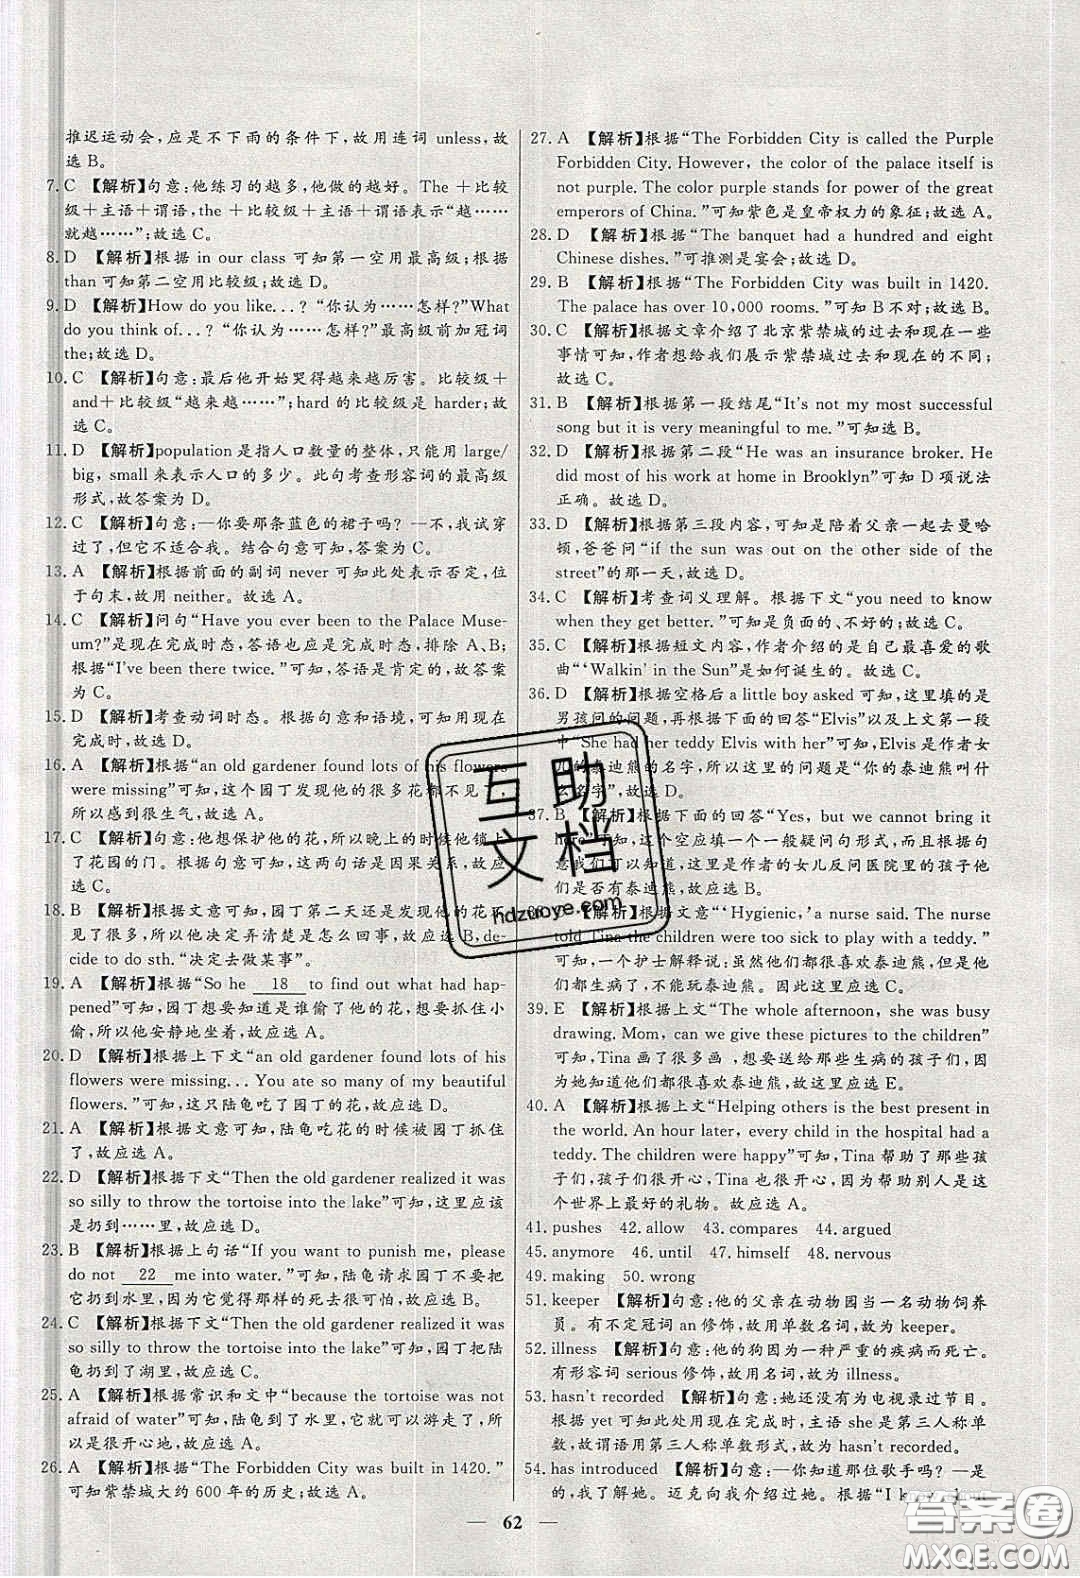 推迟运动会,应是不下雨的条件下,故用连词 unless,故
选 B。
7. C 【解析】句意:他练习的越多,他做的越好。The +比较
级+主语+谓语,the +比较级+主语+谓语表示“越……
就越……”;故选 C。
8. D 【解析】根据 in our class 可知第一空用最高级;根据
than 可知第二空用比较级,故选 D。
9. D 【解析】How do you like...? “你认为……怎样?”What
do you think of...? “你认为……怎样?”最高级前加冠词
the;故选 D。
10. C 【解析】句意:最后他开始哭得越来越厉害。比较级+
and+比较级“越来越……”;hard 的比较级是 harder;故
选 C。
11. D 【解析】population 是指人口数量的整体,只能用 large/
big, small 来表示人口的多少。此句考查形容词的最高级
形式,故答案为 D。
12. C 【解析】句意:—你要那条蓝色的裙子吗? —不,我试穿
过了,但它不适合我。结合句意可知,故答案为 C。
13. A 【解析】根据前面的副词 never 可知此处表示否定,位
于句末,故用 neither。故选 A。
14. C 【解析】问句“Have you ever been to the Palace Muse-
um?”是现在完成时态,答语也应是完成时态,排除 A、B;
根据“I've been there twice.”可知,答语是肯定的,故答案
为 C。
15. D 【解析】考查动词时态。根据句意和语境,可知用现在
完成时态,故选 D。
16. A 【解析】根据“an old gardener found lots of his flowers
were missing”可知,这个园丁发现他的很多花都不见了,
所以感到很生气。故选 A。
17. C 【解析】句意:他想保护他的花,所以晚上的时候他锁上
了花园的门。根据句意可知,这两句话是因果关系,故应
选 C。
18. B 【解析】根据文意可知,园丁第二天还是发现他的花不
见了很多,所以他决定弄清楚是怎么回事,故应选 B,de-
cide to do sth.“决定去做某事”。
19. A 【解析】根据“So he 18 to find out what had hap-
pened”可知,园丁想要知道是谁偷了他的花,想要抓住小
偷,所以他安静地坐着,故应选 A。
20. D 【解析】根据上下文“an old gardener found lots of his
flowers were missing... You ate so many of my beautiful
flowers.”可知,这只陆龟吃了园丁的花,故应选 D。
21. A 【解析】根据文意可知,陆龟吃花的时候被园丁抓住
了,故应选 A。
22. D 【解析】根据下文“Then the old gardener realized it was
so silly to throw the tortoise into the lake”可知,这里应该
是扔到……里,故应选 D。
23. B 【解析】根据上句话“If you want to punish me, please
do not 22 me into water.”可知,陆龟请求园丁不要把
它扔到水里,因为那样的死去很可怕,故应选 B。
24. C 【解析】根据下文“Then the old gardener realized it was
so silly to throw the tortoise into the lake”可知,园丁把陆
龟扔到了湖里,故应选 C。
25. A 【解析】根据常识和文中“because the tortoise was not
afraid of water”可知,陆龟到了水里,它就可以游走了,所
以是很开心地,故应选 A。
26. A 【解析】根据“The Forbidden City was built in 1420.”
可知紫禁城大约 600 年的历史;故选 A。
27. A 【解析】根据“The Forbidden City is called the Purple
Forbidden City. However, the color of the palace itself is
not purple. The color purple stands for power of the great
emperors of China.”可知紫色是皇帝权力的象征;故选 A。
28. D 【解析】根据“The banquet had a hundred and eight
Chinese dishes.”可推测是宴会;故选 D。
29. B 【解析】根据“The Forbidden City was built in 1420.
The palace has over 10,000 rooms.”可知 B 不对;故选 B。
30. C 【解析】根据文章介绍了北京紫禁城的过去和现在一些
事情可知,作者想给我们展示紫禁城过去和现在的不同;
故选 C。
31. B 【解析】根据第一段结尾“It's not my most successful
song but it is very meaningful to me.”可知选 B。
32. D 【解析】根据第二段“He was an insurance broker. He
did most of his work at home in Brooklyn”可知 D 项说法
正确。故选 D。
33. D 【解析】根据第三段内容,可知是陪着父亲一起去曼哈
顿,爸爸问“if the sun was out on the other side of the
street”的那一天,故选 D。
34. C 【解析】考查词义理解。根据下文“you need to know
when they get better.”可知是负面的、不好的;故选 C。
35. C 【解析】根据短文内容,作者介绍的是自己最喜爱的歌
曲“‘Walkin' in the Sun”是如何诞生的。故选 C。
36. D 【解析】根据空格后 a little boy asked 可知,这里填的是
男孩问的问题,再根据下面的回答“Elvis”以及上文第一段
中“She had her teddy Elvis with her”可知,Elvis 是作者女
儿的泰迪熊的名字,所以这里的问题是“你的泰迪熊叫什
么名字”,故选 D。
37. B 【解析】根据下面的回答“Yes, but we cannot bring it
here”可知,这个空应填一个一般疑问句形式,而根据句
意我们可以知道,这里是作者的女儿反问医院里的孩子他
们是否有泰迪熊。故应选 B。
【解析】根据文意“‘Hygienic,’a nurse said. The nurse
told Tina the children were too sick to play with a teddy.”
可知,一个护士解释说:虽然他们都很喜欢泰迪熊,但是他
们都生病了,不能玩泰迪熊。因此这里应选 C。
39. E 【解析】根据上文“The whole afternoon, she was busy
drawing. Mom, can we give these pictures to the children”
可知,Tina 画了很多画 ,想要送给那些生病的孩子们,因
为她知道他们都很喜欢泰迪熊。故这里应选 E。
40. A 【解析】根据上文“Helping others is the best present in
the world. An hour later, every child in the hospital had a
teddy. The children were happy”可知,Tina 帮助了那些
孩子们,孩子们很开心,Tina 也很开心,因为帮助别人是这
个世界上最好的礼物。故应选 A。
41. pushes 42. allow 43. compares 44. argued
45. anymore 46. until 47. himself 48. nervous
49. making 50. wrong
51. keeper 【解析】句意:他的父亲在动物园当一名动物饲养
员。有不定冠词 an 修饰,故用单数名词,故为 keeper。
52. illness 【解析】句意:他的狗因为一种严重的疾病而死亡。
有形容词 serious 修饰,故用名词,故为 illness。
53. hasn't recorded 【解析】句意:她还没有为电视录过节目。
根据 yet 可知此处用现在完成时,主语 she 是第三人称单
数,故谓语用第三人称单数形式,故为 hasn't recorded。
54. has introduced 【解析】句意:—你知道那位歌手吗? —是
的,我了解她。迈克向我介绍过她。根据“I
62
互助
文档
hdzuoye.com
答案圈
MXQE.COM